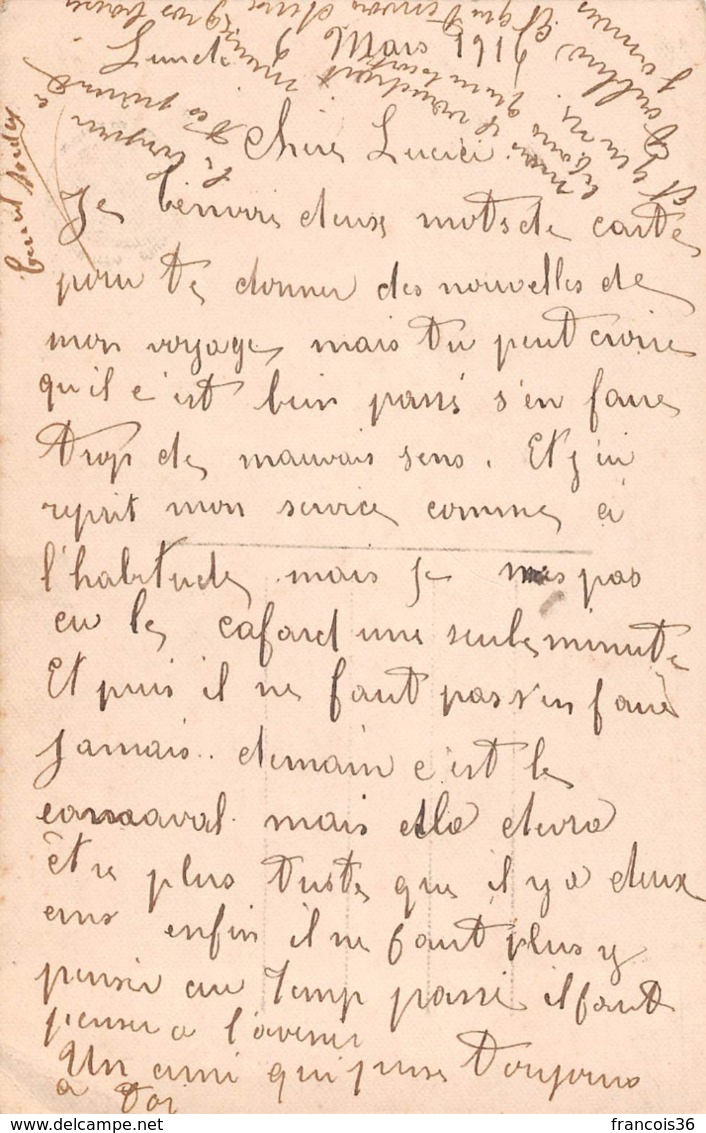 Lundi 6 Mars 1916
Chère Lucie
Je t'envoie deux mots de carte
pour te donner des nouvelles de
mon voyage mais tu peut croire
qu'il c'est bien passé s'en faire
trop de mauvais sens. Et j'ai
reprit mon service comme à
l'habitude mais je pas
eu le cafard une seule minute
Et puis il ne faut pas s'en faire
Jamais.. demain c'est le
carnaval mais ella devra
être plus triste que il y a deux
ans enfin il ne faut plus y
penser au Temp passé il faut
penser a l'avenir
Un ami qui pense Toujours
a Toi
francois36